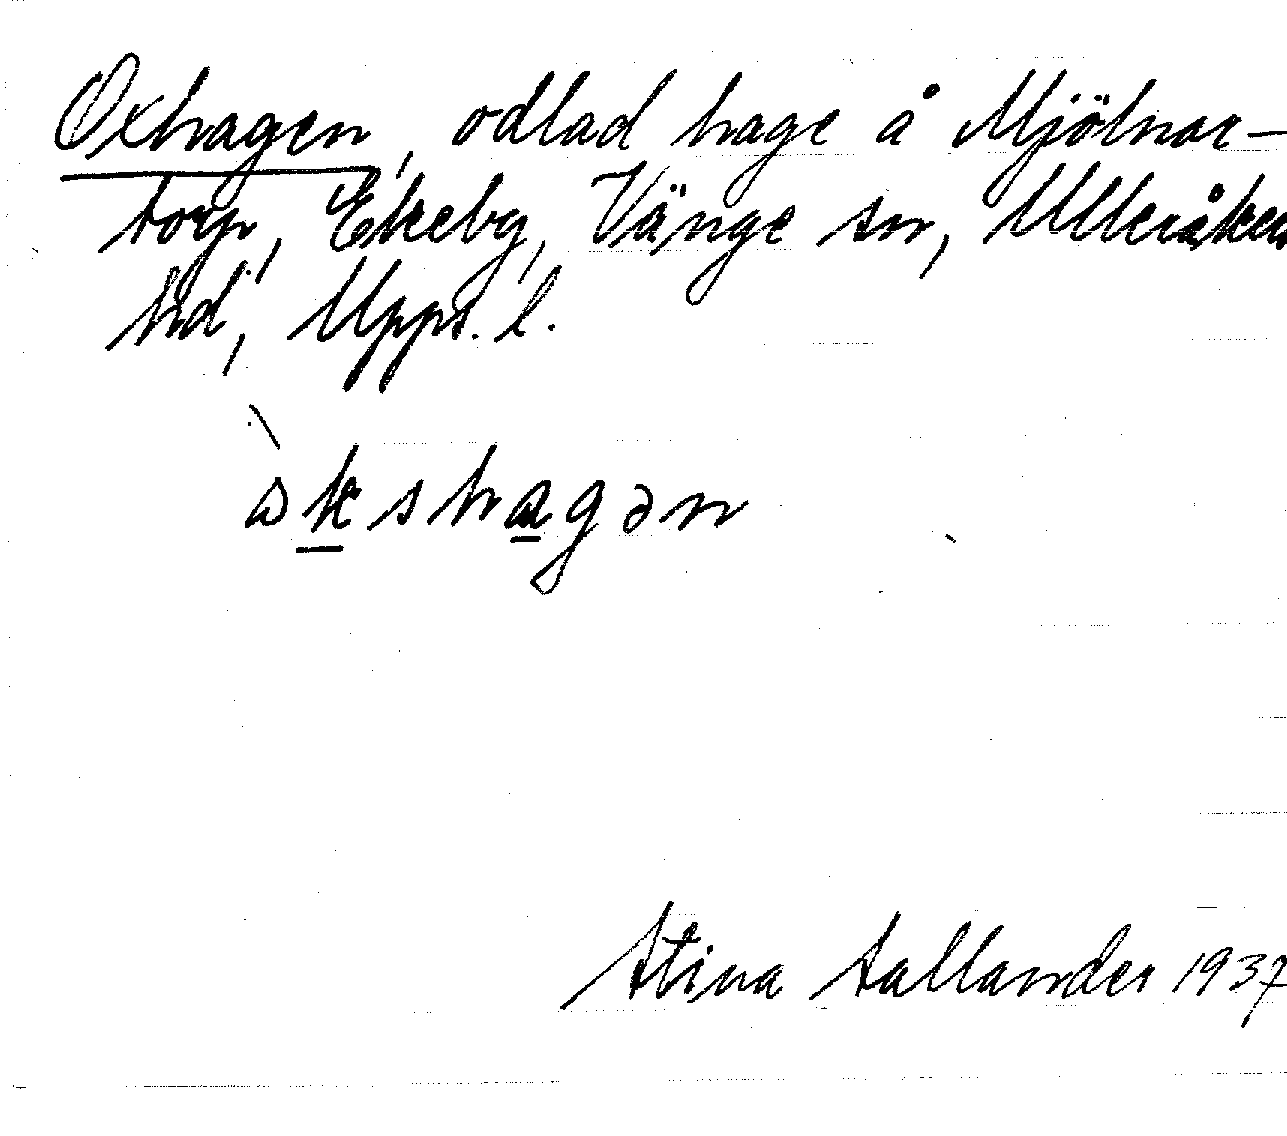 Oxhagen, odlad hage å Mjölnar-
torp, Ekeby, Vänge sn, Ulleråkers
hd, Upps. l.
àkshagən
Stina Sallander 1937